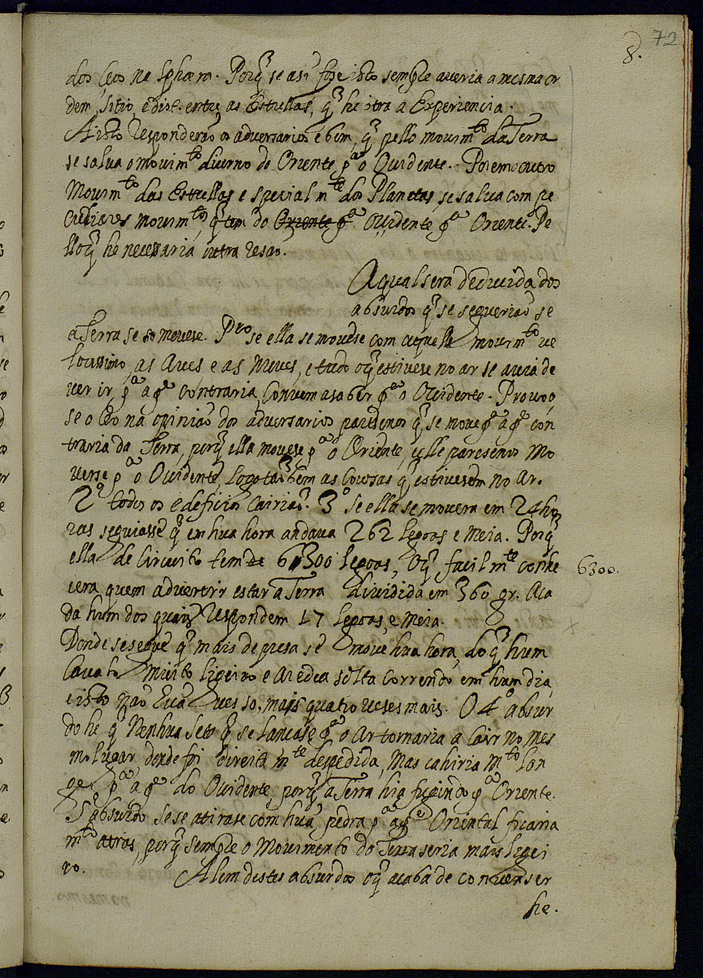 8. 72
dos Ceos na Sphæra. Porq̃ se asi fose isto sempre averia a mesma or
dem, sitio, e dist. entre as Estrellas, q̃ he ctra a Experiencia.
A isto responderaõ os adversarios e bem, q̃ pello movim.to da Terra
se salva o movim.to diurno do Oriente p.a o Ouidente. Porem outro
Movim.to das Estrellas e special m.te dos Planetas, se salva com pe
culiares movim.tos, q̃ tem do Oriente p.a Ouidente p.a Oriente. Pe
lloq̃ he necessaria outra resaõ.
A qual sera deduuida dos
absurdos q̃ se segueriaõ se
a Terra se movese. Pr.o se ella se movese com aquelle movim.to ve
locissimo, as Aves e as Nuves, e tudo oq̃ estivese no ar se avia de
ver ir p.a a p.te contraria, convem a saber p.a o Ouidente. Provo o
se o Ceo na opiniaõ dos adversarios paresenos q̃ se move p.a a p.te con
traria da Terra, porq̃ ella movese p.a o Oriente, e elle paresenos mo
verse p.a o Ouidente, Logo taõbem as Cousas q̃ estivesem no Ar.
2.o todos os edeficios cairiaõ. 3.o Se ella se movera em 24 ho
ras seguiasse q̃ em hua hora andava 262 legoas e meia. Porq̃
ella de Circuito tem 6300 legoas, Oq̃ facil m.te conhe
cera quem advertir estar a Terra dividida em 360 gr. A ca
6300.
da hum dos quais respondem 17 legoas, e meia.
Donde se segue q̃ mais depresa se move hua hora, do q̃ hum
Cavalo muito ligeiro e a redea solta correndo em hum dia
e isto naõ hua ves so, mais quatro veses mais. O 4.o absur
do he q̃ Nenhua Seta q̃ se lancase p.a o Ar tornaria a cair no mes
mo lugar donde foi direita m.te despedida, Mas cahiria m.to lon
ge p.a a p.te do Ouidente, porq̃ a Terra hia fugindo p.a Oriente.
5.o absurdo se se atirase com hua pedra p.a a p.te Oriental ficaria
m.to atras, porq̃ sempre o Movimento da Terra seria mais ligei
ro. Alem destes absurdos oq̃ acaba de convenser
he.